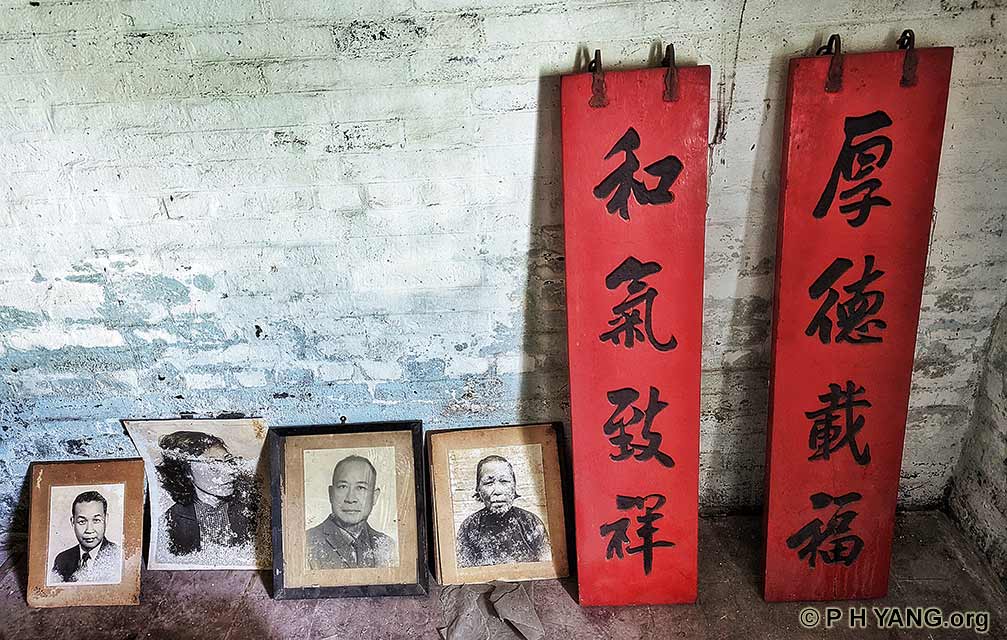 厚德載福
和氣致祥
© P H YANG.org